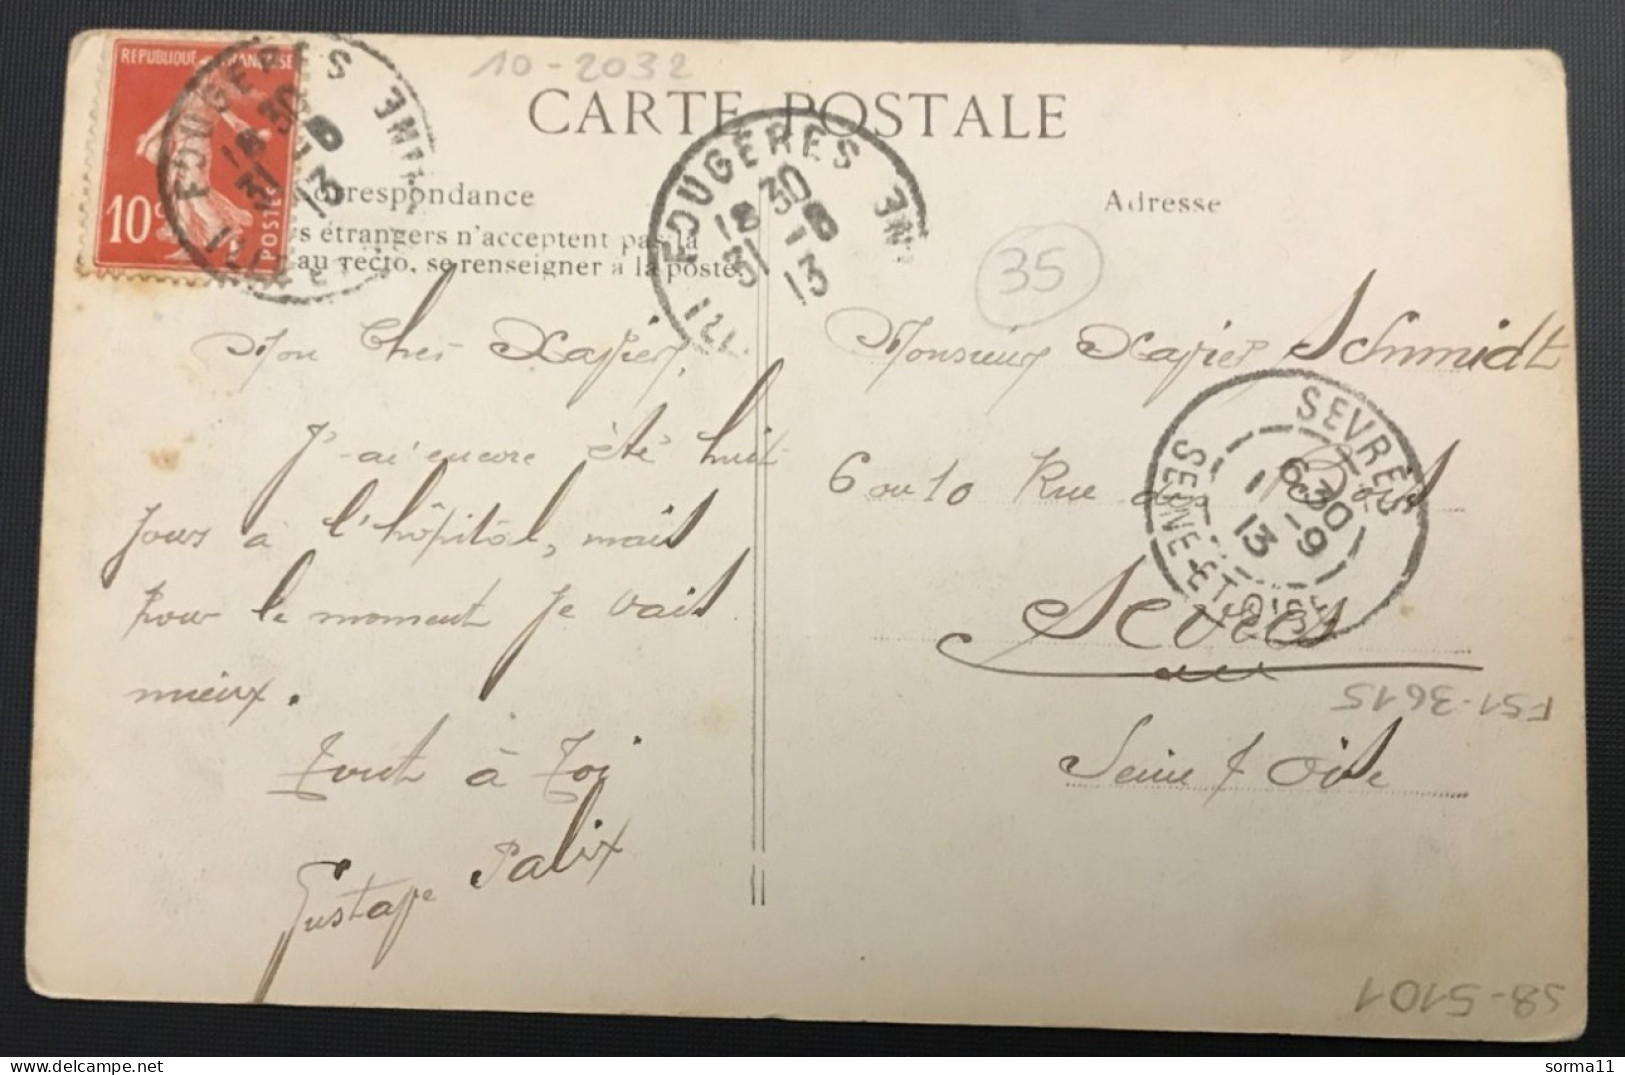 10-2032
CARTE POSTALE
REPUBLIQUE FRANÇAISE
10c
POSTES
FOUGERES
18 30
31 -8
13
ILLE-ET-
FOUGERES
18 30
31 -8
13
ILL
Correspondance
s étrangers n'acceptent pas la
au recto, se renseigner à la poste.
Adresse
35
Mon Cher Xavier,
J'ai encore été huit
jours à l'hôpital, mais
pour le moment je vais
mieux.
Tout à Toi
Gustave Palix
Monsieur Xavier Schmidt
6 ou 10 Rue des
Sèvres
Seine & Oise
SEVRES
6 30
1 -9
13
SEINE-ET-OISE
F51-3615
S8-5101
sorma11